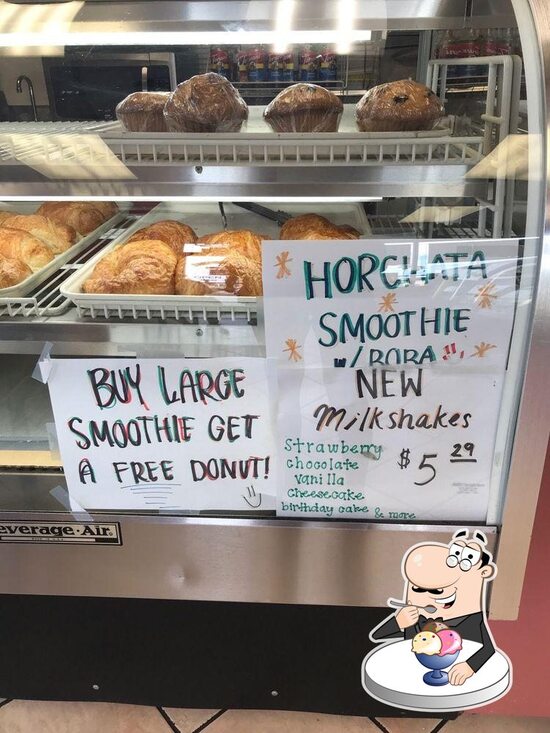 HORCHATA
SMOOTHIE
w/ BOBA!!
BUY LARGE
SMOOTHIE GET
A FREE DONUT!
NEW
Milkshakes
$5 29
Strawberry
chocolate
vanilla
cheesecake
birthday cake & more
everage-Air